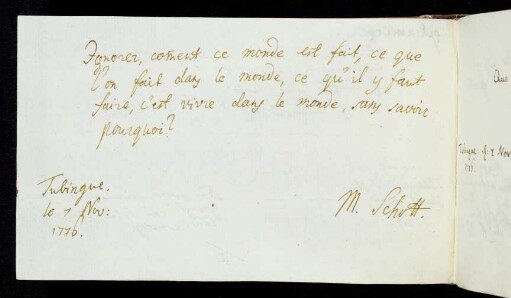 Ignorer, coment ce monde est fait, ce que
l'on fait dans le monde, ce qu'il y faut
faire, c'est vivre dans le monde, sans savoir
pourquoi?
Tubingue.
le 7 Nov:
1770.
M. Schott.